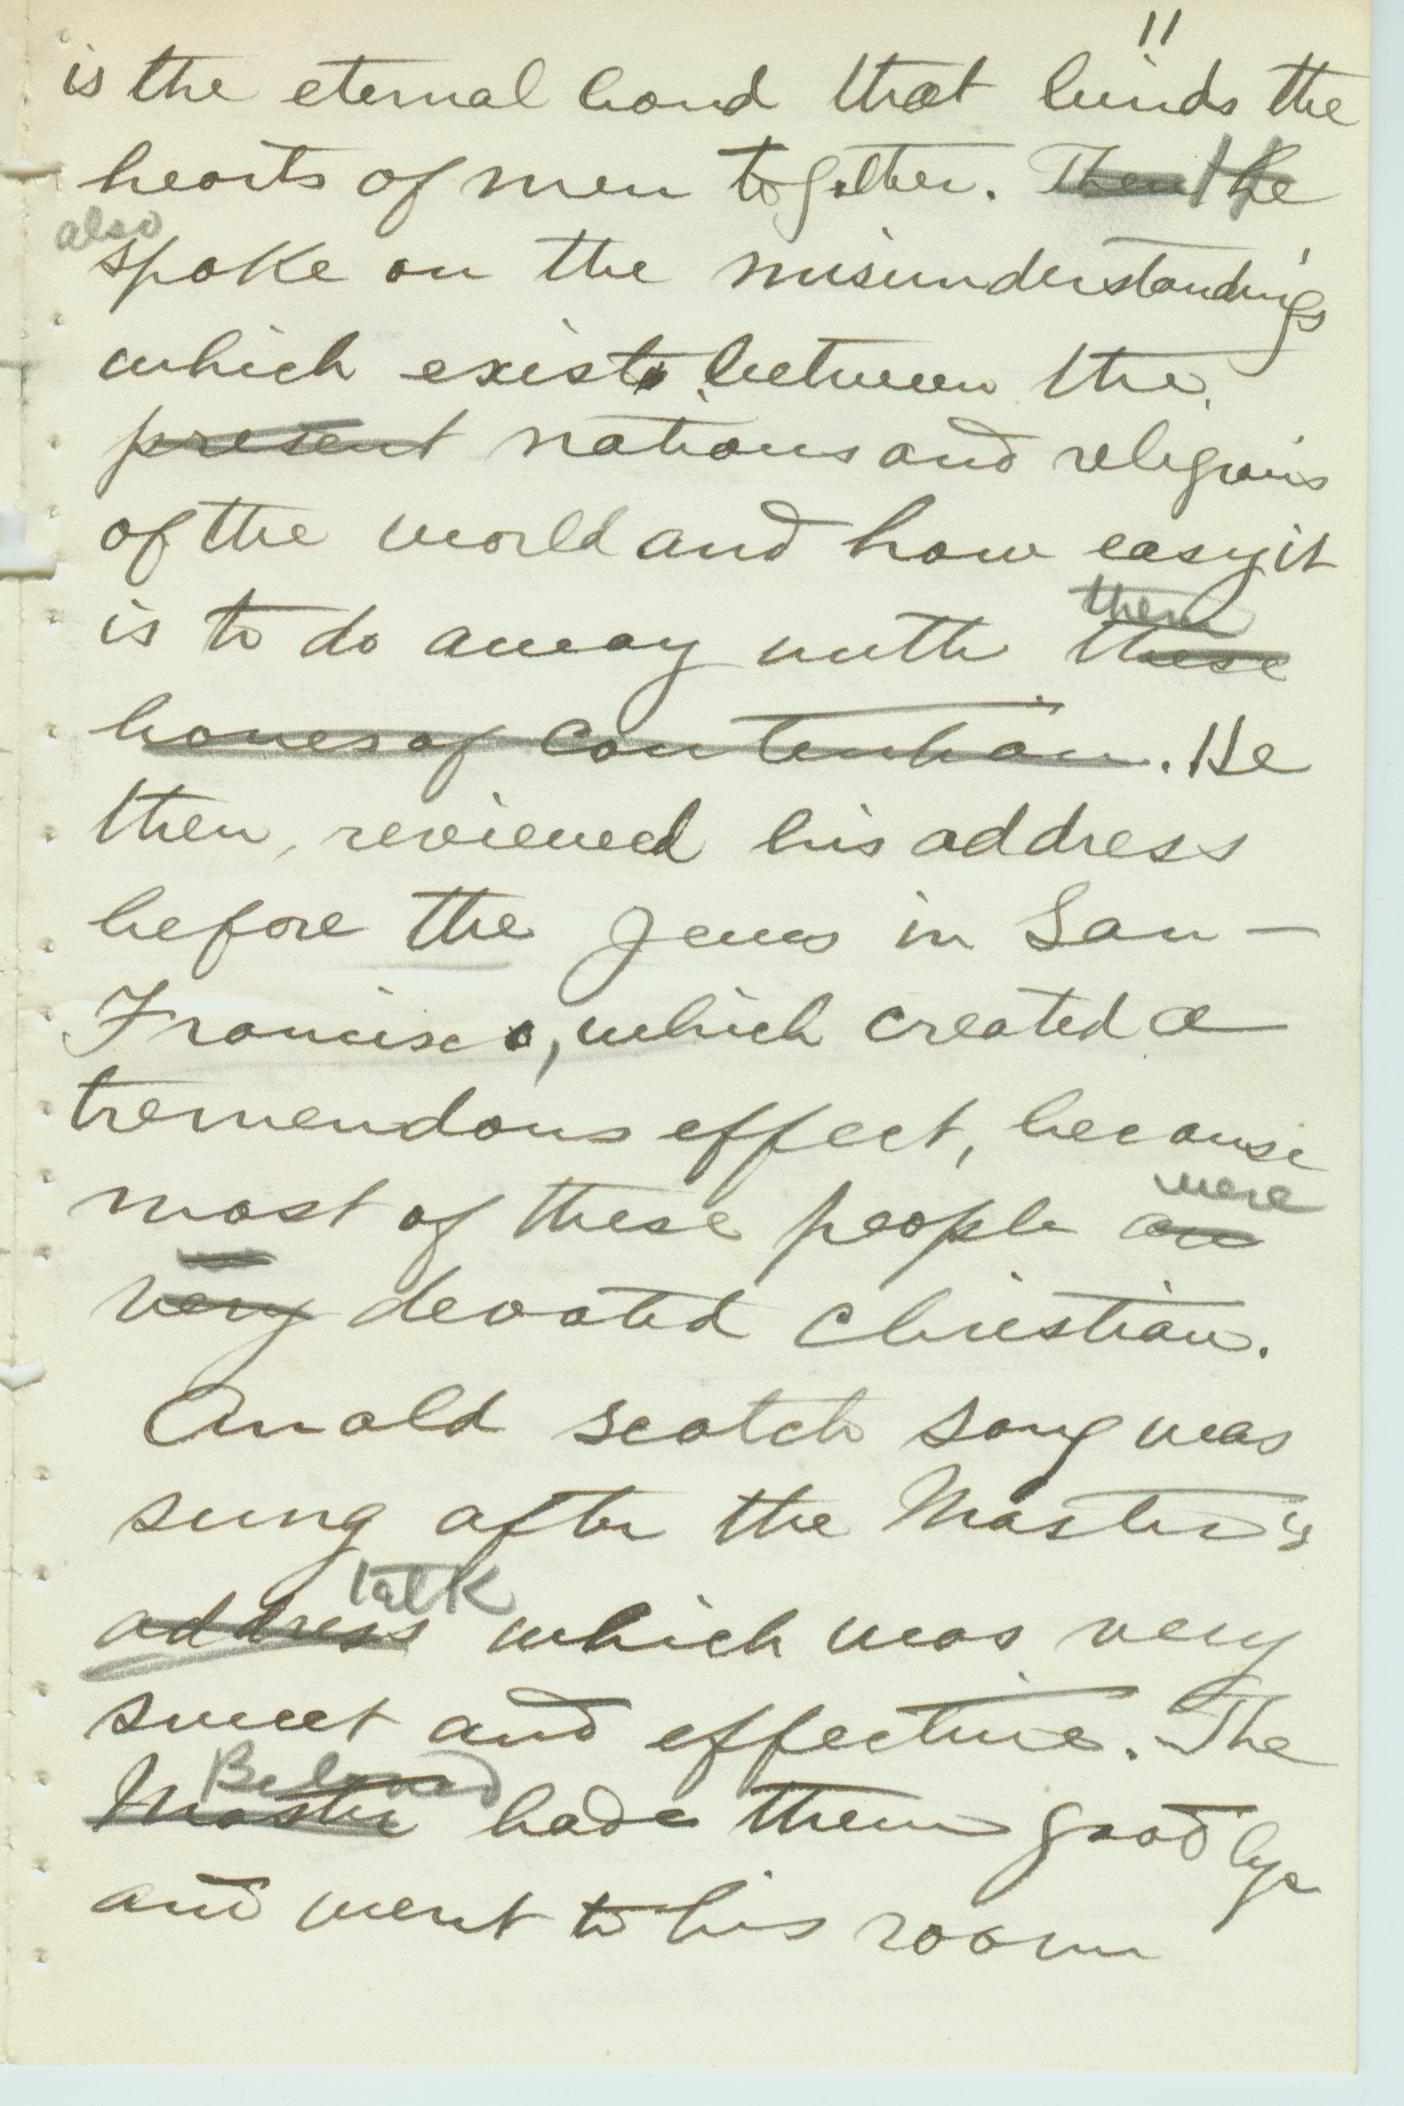 11
is the eternal bond that binds the
hearts of men together. Then He
also
spoke on the misunderstandings
which exists between the
present nations and religions
of the world and how easy it
them
is to do away with these
bones of contention. He
then, reviewed his address
before the Jews in San-
Francisco, which created a
tremendous effect, because
were
most of these people are
very devoted Christian.
An old scotch song was
sung after the Master's
talk
address which was very
sweet and effective. The
Beloved
Master bade them good bye
and went to his room